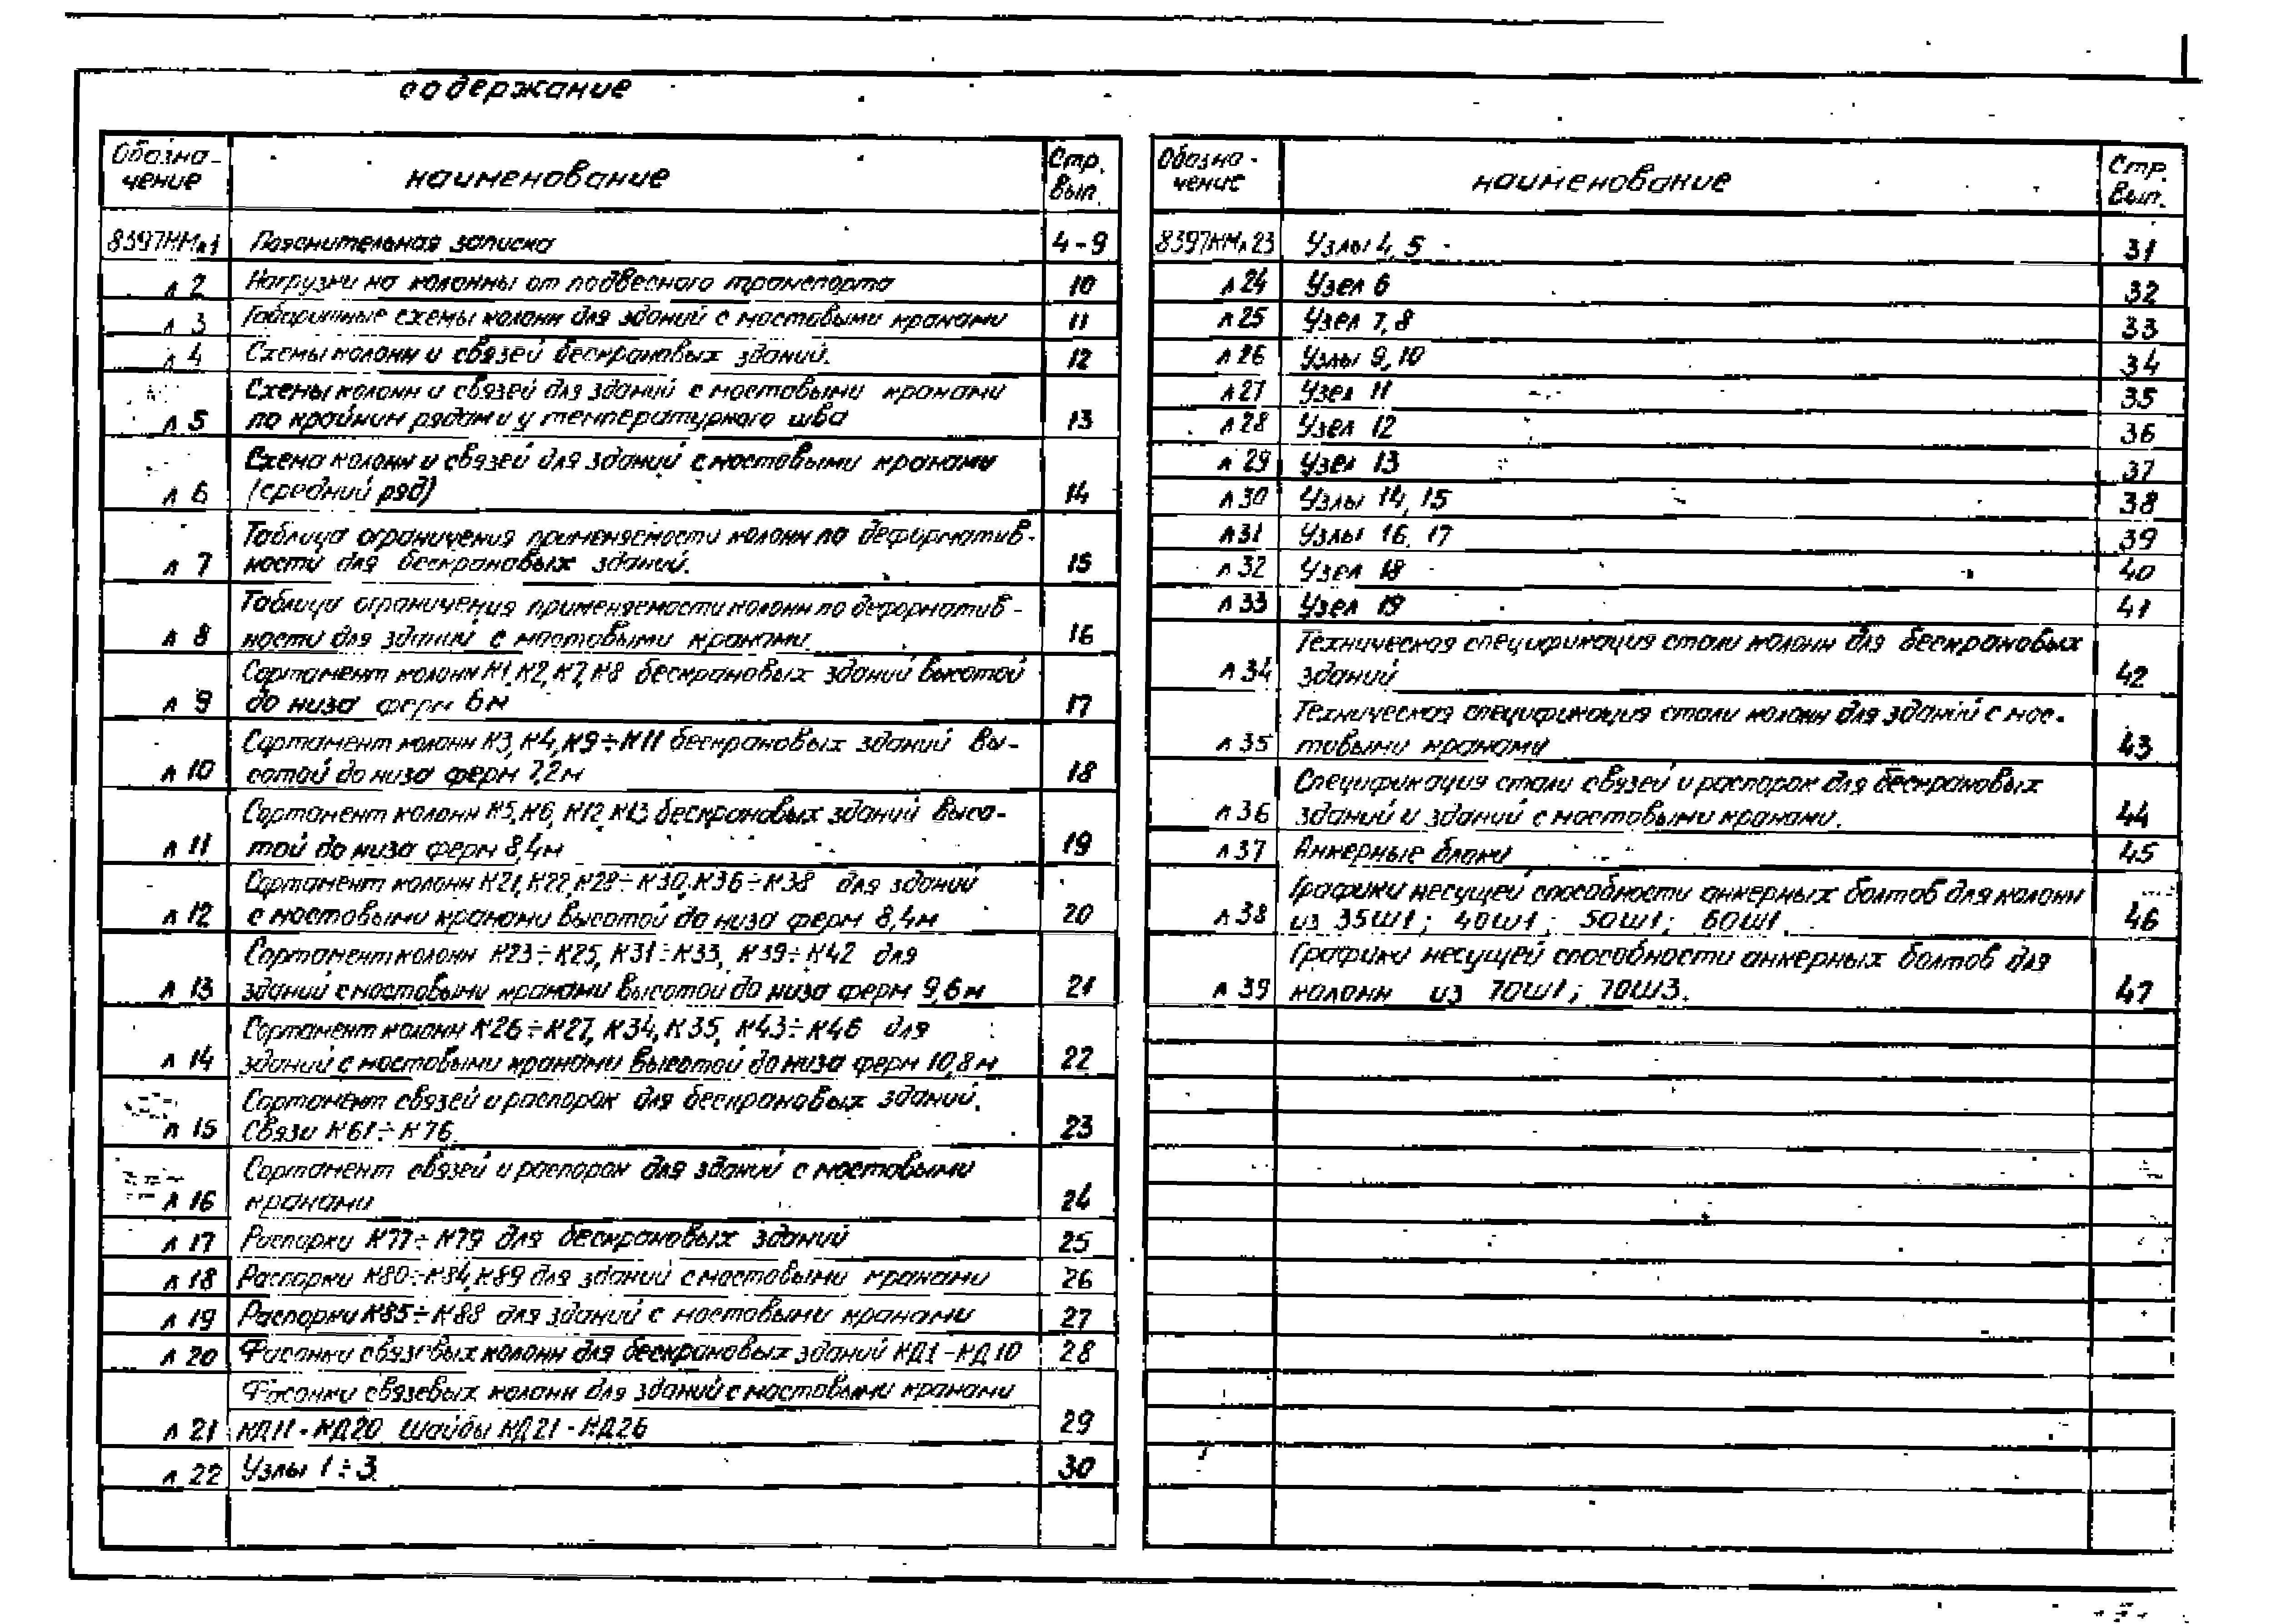 содержание
Обозна-
чение
наименование
Стр.
вып.
8397КМл1 Пояснительная записка 4-9
л 2 Нагрузки на колонны от подвесного транспорта 10
л 3 Габаритные схемы колонн для зданий с мостовыми кранами 11
л 4 Схемы колонн и связей бескрановых зданий. 12
Схемы колонн и связей для зданий с мостовыми кранами
л 5 по крайним рядам и у температурного шва 13
Схема колонн и связей для зданий с мостовыми кранами
л 6 (средний ряд) 14
Таблица ограничения применяемости колонн по деформатив-
л 7 ности для бескрановых зданий. 15
Таблица ограничения применяемости колонн по деформатив-
л 8 ности для зданий с мостовыми кранами 16
Сортамент колонн К1, К2, К7, К8 бескрановых зданий высотой
л 9 до низа ферм 6м 17
Сортамент колонн К3, К4, К9÷К11 бескрановых зданий вы-
л 10 сотой до низа ферм 7,2м 18
Сортамент колонн К5, К6, К12, К13 бескрановых зданий высо-
л 11 той до низа ферм 8,4м 19
Сортамент колонн К21, К22, К28÷К30, К36÷К38 для зданий
л 12 с мостовыми кранами высотой до низа ферм 8,4м 20
Сортамент колонн К23÷К25, К31÷К33, К39÷К42 для
л 13 зданий с мостовыми кранами высотой до низа ферм 9,6м 21
Сортамент колонн К26÷К27, К34, К35, К43÷К46 для
л 14 зданий с мостовыми кранами высотой до низа ферм 10,8м 22
Сортамент связей и распорок для бескрановых зданий.
л 15 Связи К61÷К76 23
Сортамент связей и распорок для зданий с мостовыми
л 16 кранами 24
л 17 Распорки К77÷К79 для бескрановых зданий 25
л 18 Распорки К80÷К84, К89 для зданий с мостовыми кранами 26
л 19 Распорки К85÷К88 для зданий с мостовыми кранами 27
л 20 Фасонки связевых колонн для бескрановых зданий КД1-КД10 28
Фасонки связевых колонн для зданий с мостовыми кранами
л 21 КД11-КД20 Шайбы КД21-КД26 29
л 22 Узлы 1÷3 30
Обозна-
чение
наименование
Стр.
вып.
8397КМл23 Узлы 4, 5 31
л 24 Узел 6 32
л 25 Узел 7, 8 33
л 26 Узлы 9, 10 34
л 27 Узел 11 35
л 28 Узел 12 36
л 29 Узел 13 37
л 30 Узлы 14, 15 38
л 31 Узлы 16, 17 39
л 32 Узел 18 40
л 33 Узел 19 41
Техническая спецификация стали колонн для бескрановых
л 34 зданий 42
Техническая спецификация стали колонн для зданий с мос-
л 35 товыми кранами 43
Спецификация стали связей и распорок для бескрановых
л 36 зданий и зданий с мостовыми кранами. 44
л 37 Анкерные блоки 45
Графики несущей способности анкерных болтов для колонн
л 38 из 35Ш1; 40Ш1; 50Ш1; 60Ш1. 46
Графики несущей способности анкерных болтов для
л 39 колонн из 70Ш1; 70Ш3. 47